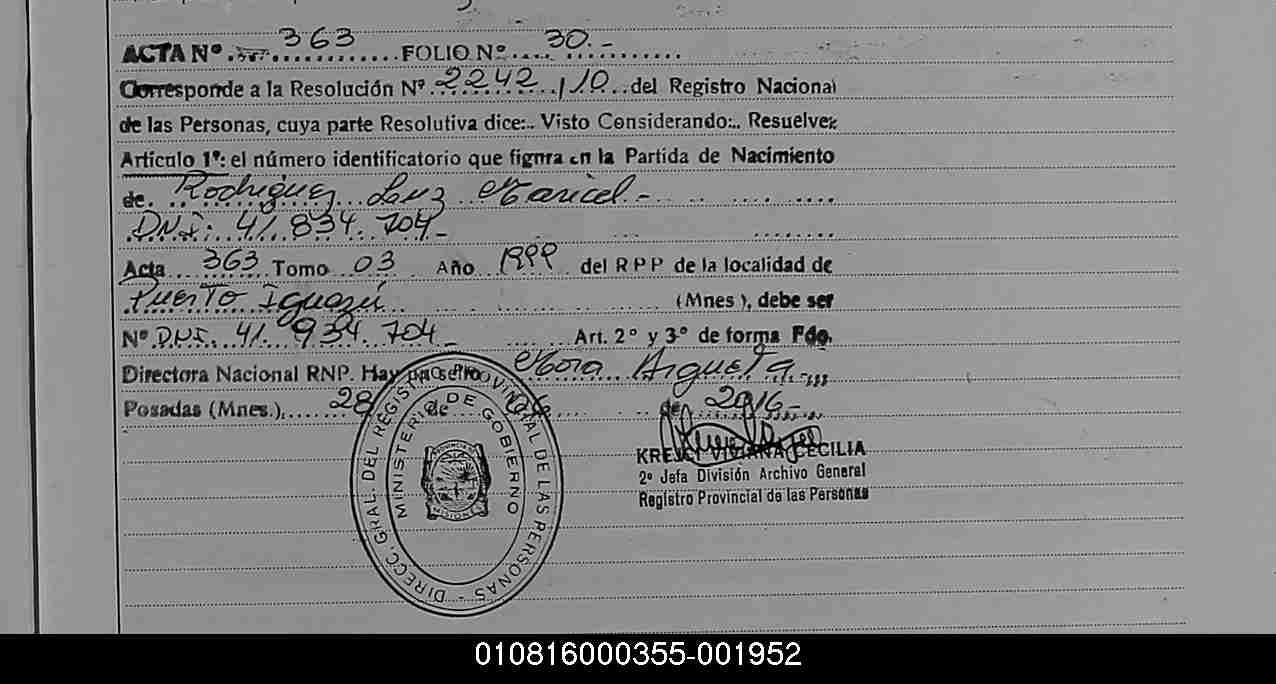 ACTA Nº 363 FOLIO Nº 30.-
Corresponde a la Resolución Nº 2242/10 del Registro Nacional
de las Personas, cuya parte Resolutiva dice:.. Visto Considerando:.. Resuelve:
Artículo 1º: el número identificatorio que figura en la Partida de Nacimiento
de. Rodriguez Luz Maricel.-
D.N.I: 41.834.704-
Acta 363 Tomo 03 Año 1999 del RPP de la localidad de
Puerto Iguazú (Mnes), debe ser
Nº D.N.I. 41.934.704- Art. 2º y 3º de forma Fdo.
Directora Nacional RNP. Hay un sello Mora Argueta.-
Posadas (Mnes.), 28 de de 2016-
KREJCI VIVIANA CECILIA
2º Jefa División Archivo General
Registro Provincial de las Personas
DIRECC. GRAL. DEL REGISTRO PROVINCIAL DE LAS PERSONAS -
MINISTERIO DE GOBIERNO
PROVINCIA
MISIONES
010816000355-001952